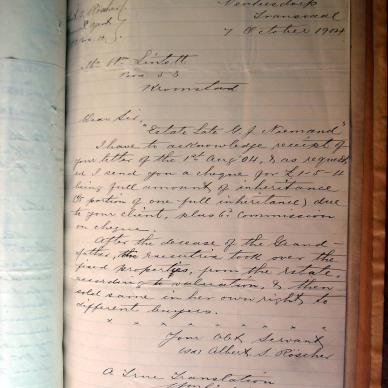 Ventersdorp
Transvaal
7 October 1904
Mr Wm Lintott
Box 58
Kroonstad
Dear Sir,
"Estate Late G. J. Niemand"
I have to acknowledge receipt of
your letter of the 1st Aug '04, & as request
ed I send you a cheque for £1-5-11
being full amount of inheritance
portion of one full inheritance) due
to your client, plus 6d Commission
on cheque.
After the decease of the Grand
father, the executrix took over the
fixed properties, from the estate,
according to valuation, & then
sold same in her own right to
different buyers.
" " " " " " "
Your Obt Servant
Was Albert S. Röscher
A True Translation